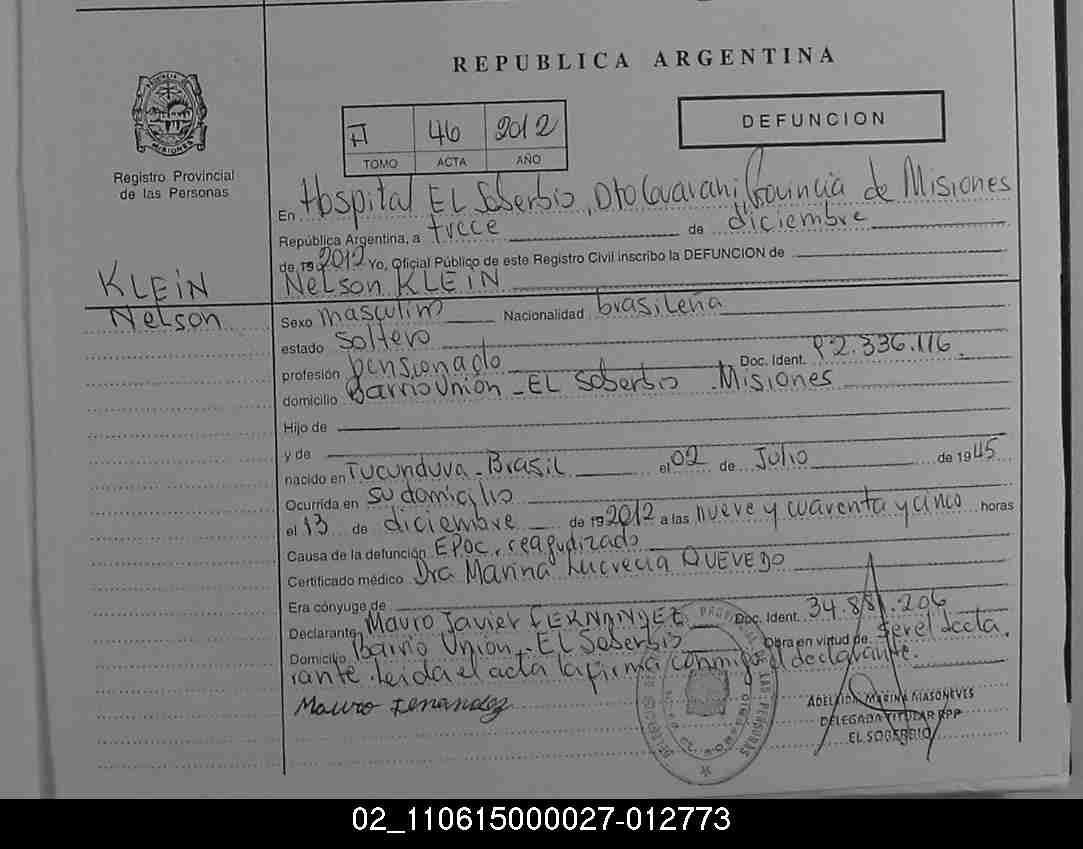 REPUBLICA ARGENTINA
II 46 2012
TOMO ACTA AÑO
DEFUNCION
Registro Provincial
de las Personas
En Hospital EL Soberbio, Dto Guarani, Provincia de Misiones
República Argentina, a trece de diciembre
de 19 2012 Yo, Oficial Público de este Registro Civil inscribo la DEFUNCION de
KLEIN
Nelson KLEIN
Nelson
Sexo masculino Nacionalidad brasileña
estado soltero
profesión pensionado Doc. Ident. 92.336.116
domicilio Barrio Unión - EL Soberbio Misiones
Hijo de
y de
nacido en Tucunduva - Brasil el 02 de Julio de 1945
Ocurrida en su domicilio
el 13 de diciembre de 19 2012 a las nueve y cuarenta y cinco horas
Causa de la defunción EPOC, reagudizado
Certificado médico Dra Marina Lucrecia QUEVEDO
Era cónyuge de
Declarante Mauro Javier FERNANDEZ Doc. Ident. 34.881.206
Domicilio Barrio Unión - EL Soberbio Obra en virtud de ser el decla
rante. Leida el acta la firma conmigo el declarante.
Mauro Fernandez
ADELAIDA MARINA MASONEVES
DELEGADA TITULAR RPP
EL SOBERBIO
02_110615000027-012773